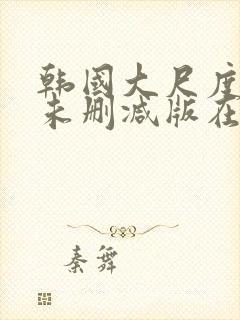 韩国大尺度
未删减版在
秦舞